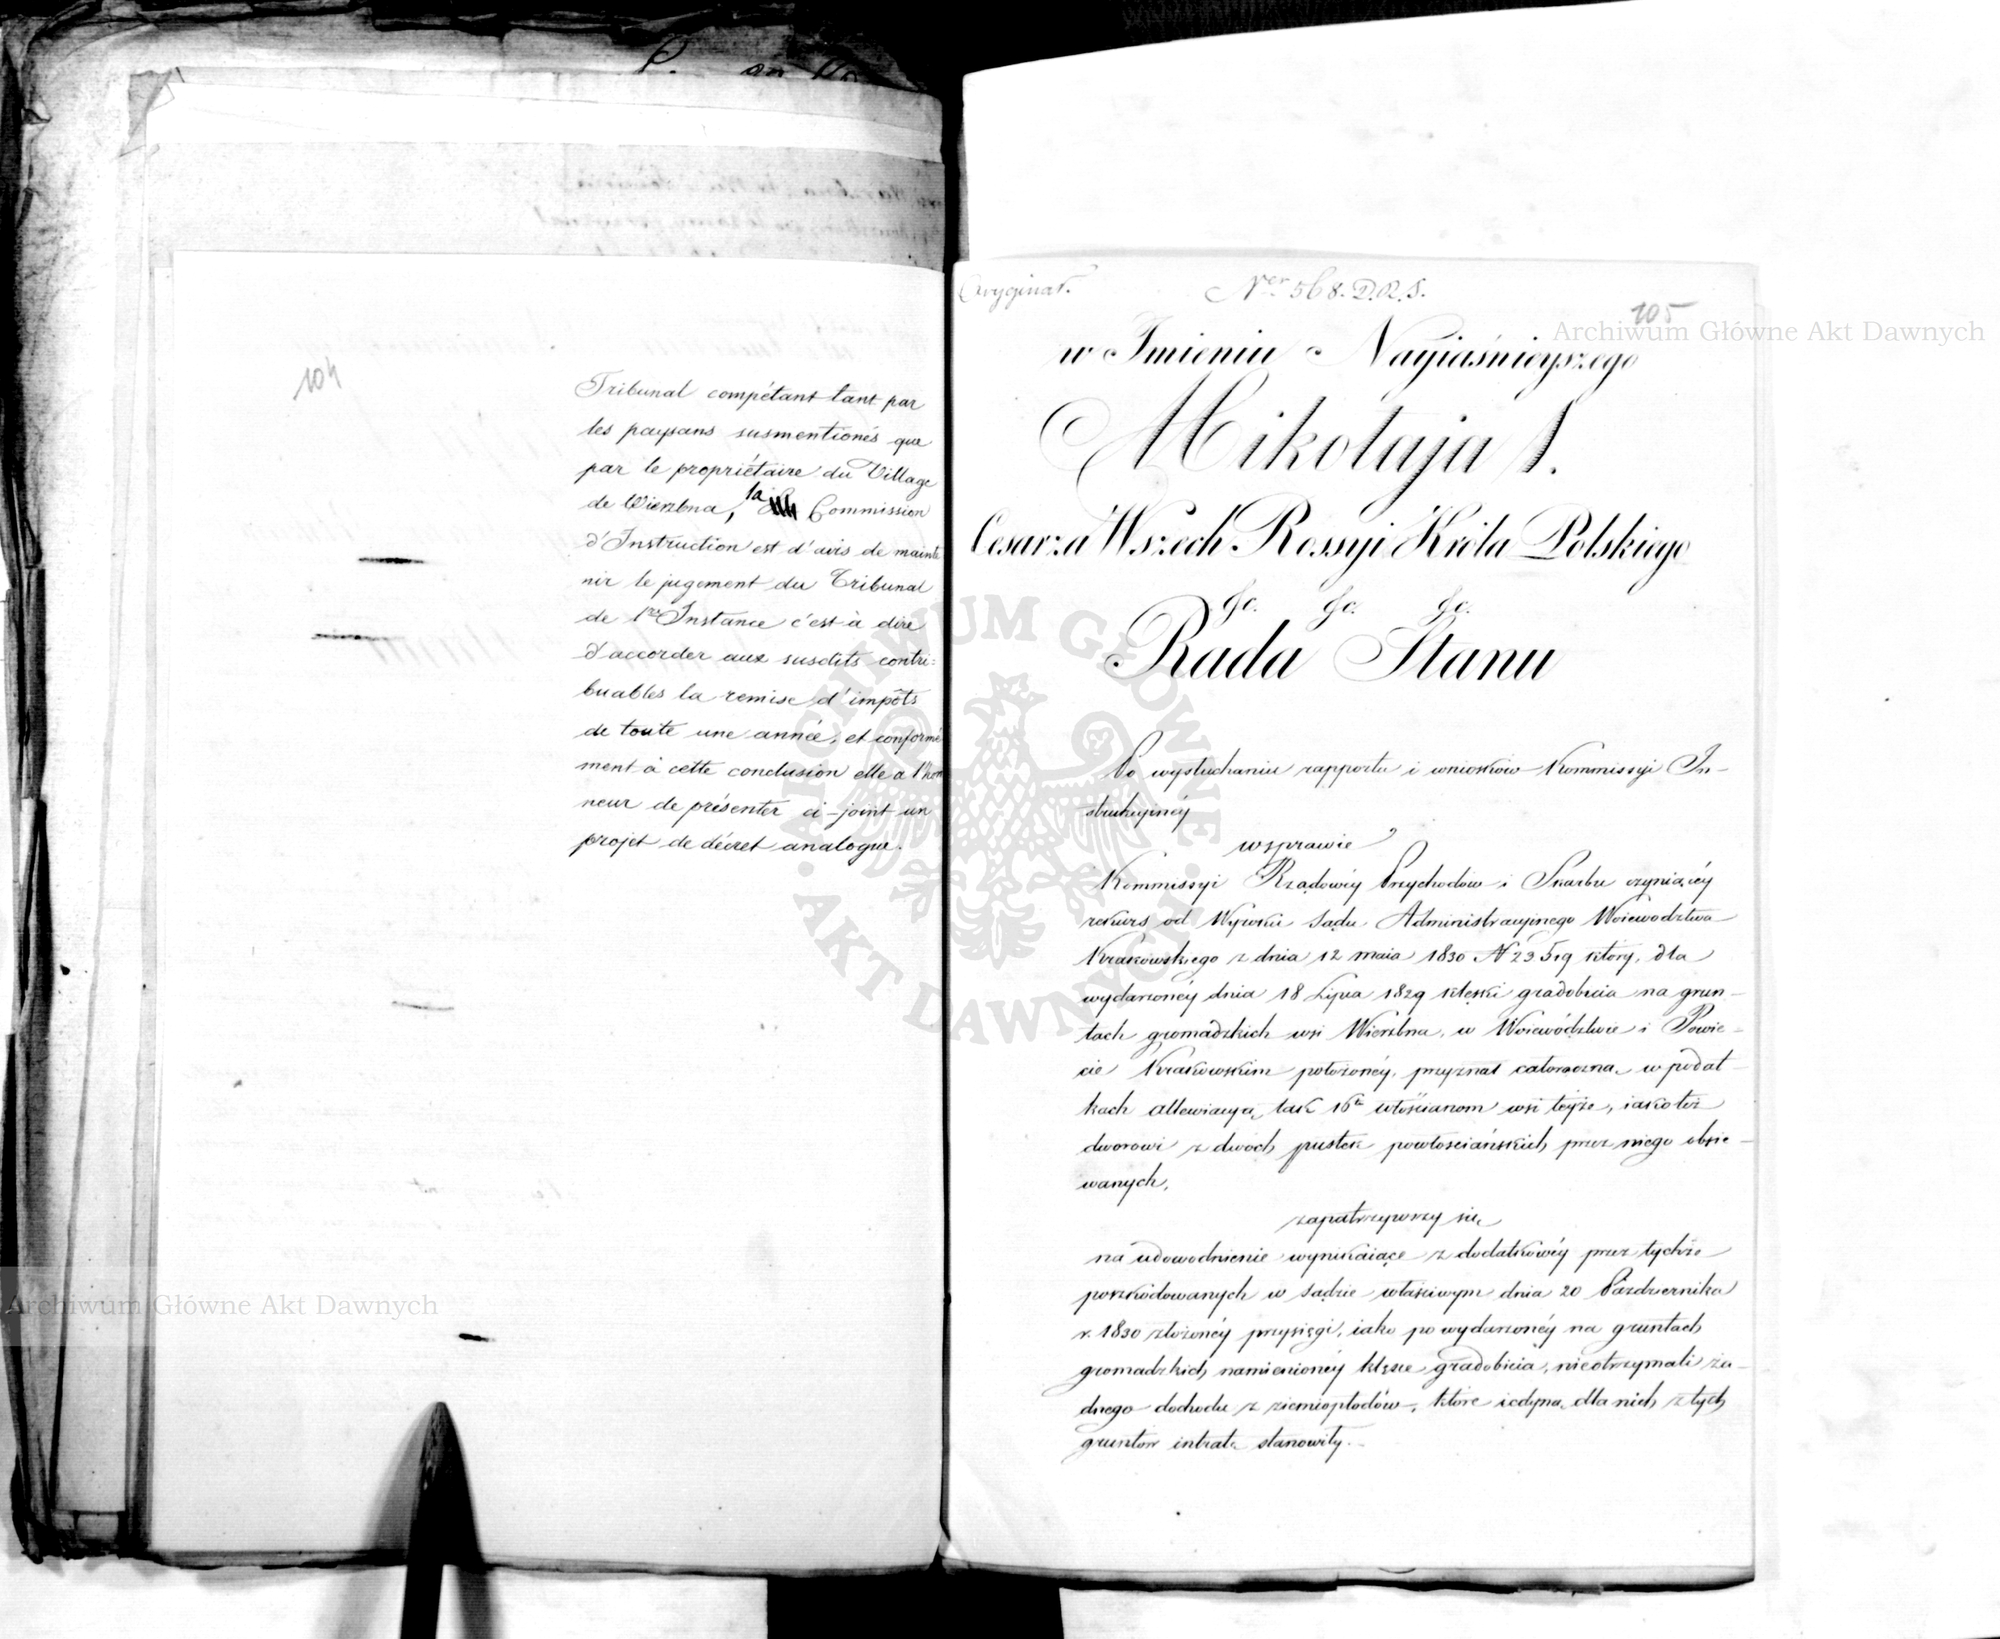 104
Tribunal compétant tant par
les paysans susmentionés que
par le propriétaire du Village
de Wierzbna, la Commission
d'Instruction est d'avis de mainte
nir le jugement du Tribunal
de 1re Instance c'est à dire
d'accorder aux susdits contri:
buables la remise d'impôts
de toute une année, et conformé
ment à cette conclusion elle a l'hon
neur de présenter ci-joint un
projet de décret analogue.
Oryginał.
Ner 568. D.R.S.
105
w Imieniu Nayiaśnieyszego
Mikołaja I.
Cesarza Wszech Rossyi Króla Polskiego
&c. &c. &c.
Rada Stanu
Po wysłuchaniu rapportu i wniosków Kommissyi In-
strukcyinéy
w sprawie
Kommissyi Rządowéy Przychodów i Skarbu czyniącéy
rekurs od Wyroku Sądu Administracyinego Woiewodztwa
Krakowskiego z dnia 12 maia 1830 N 23519 który, dla
wydarzonéy dnia 18 Lipca 1829 klęski gradobicia na grun-
tach gromadzkich wsi Wierzbna, w Woiewództwie i Powie-
cie Krakowskim położonéy, przyznał całoroczną w podat-
kach allewiacyą, tak 16tu włościanom wsi teyże, iako też
dworowi z dwóch pustek powłościańskich przez niego obsie-
wanych,
zapatrzywszy się
na udowodnienie wynikaiące z dodatkowéy przez tychże
poszkodowanych w Sądzie właściwym dnia 20 Października
r. 1830 złożonéy przysięgi, iako po wydarzonéy na gruntach
gromadzkich namienionéy klęsce gradobicia, nieotrzymali ża-
dnego dochodu z ziemiopłodów, które iedyną dla nich z tych
gruntów intratę stanowiły.
Archiwum Główne Akt Dawnych
Archiwum Główne Akt Dawnych
ARCHIWUM GŁÓWNE
AKT DAWNYCH